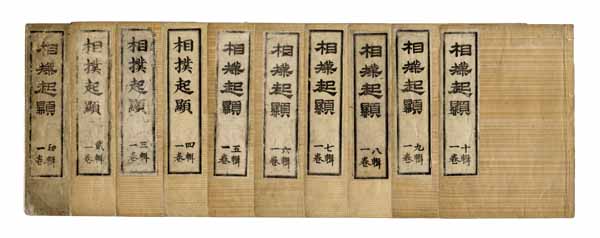 相撲起顯
初輯
一卷
相撲起顯
貳輯
一卷
相撲起顯
三輯
一卷
相撲起顯
四輯
一卷
相撲起顯
五輯
一卷
相撲起顯
六輯
一卷
相撲起顯
七輯
一卷
相撲起顯
八輯
一卷
相撲起顯
九輯
一卷
相撲起顯
十輯
一卷